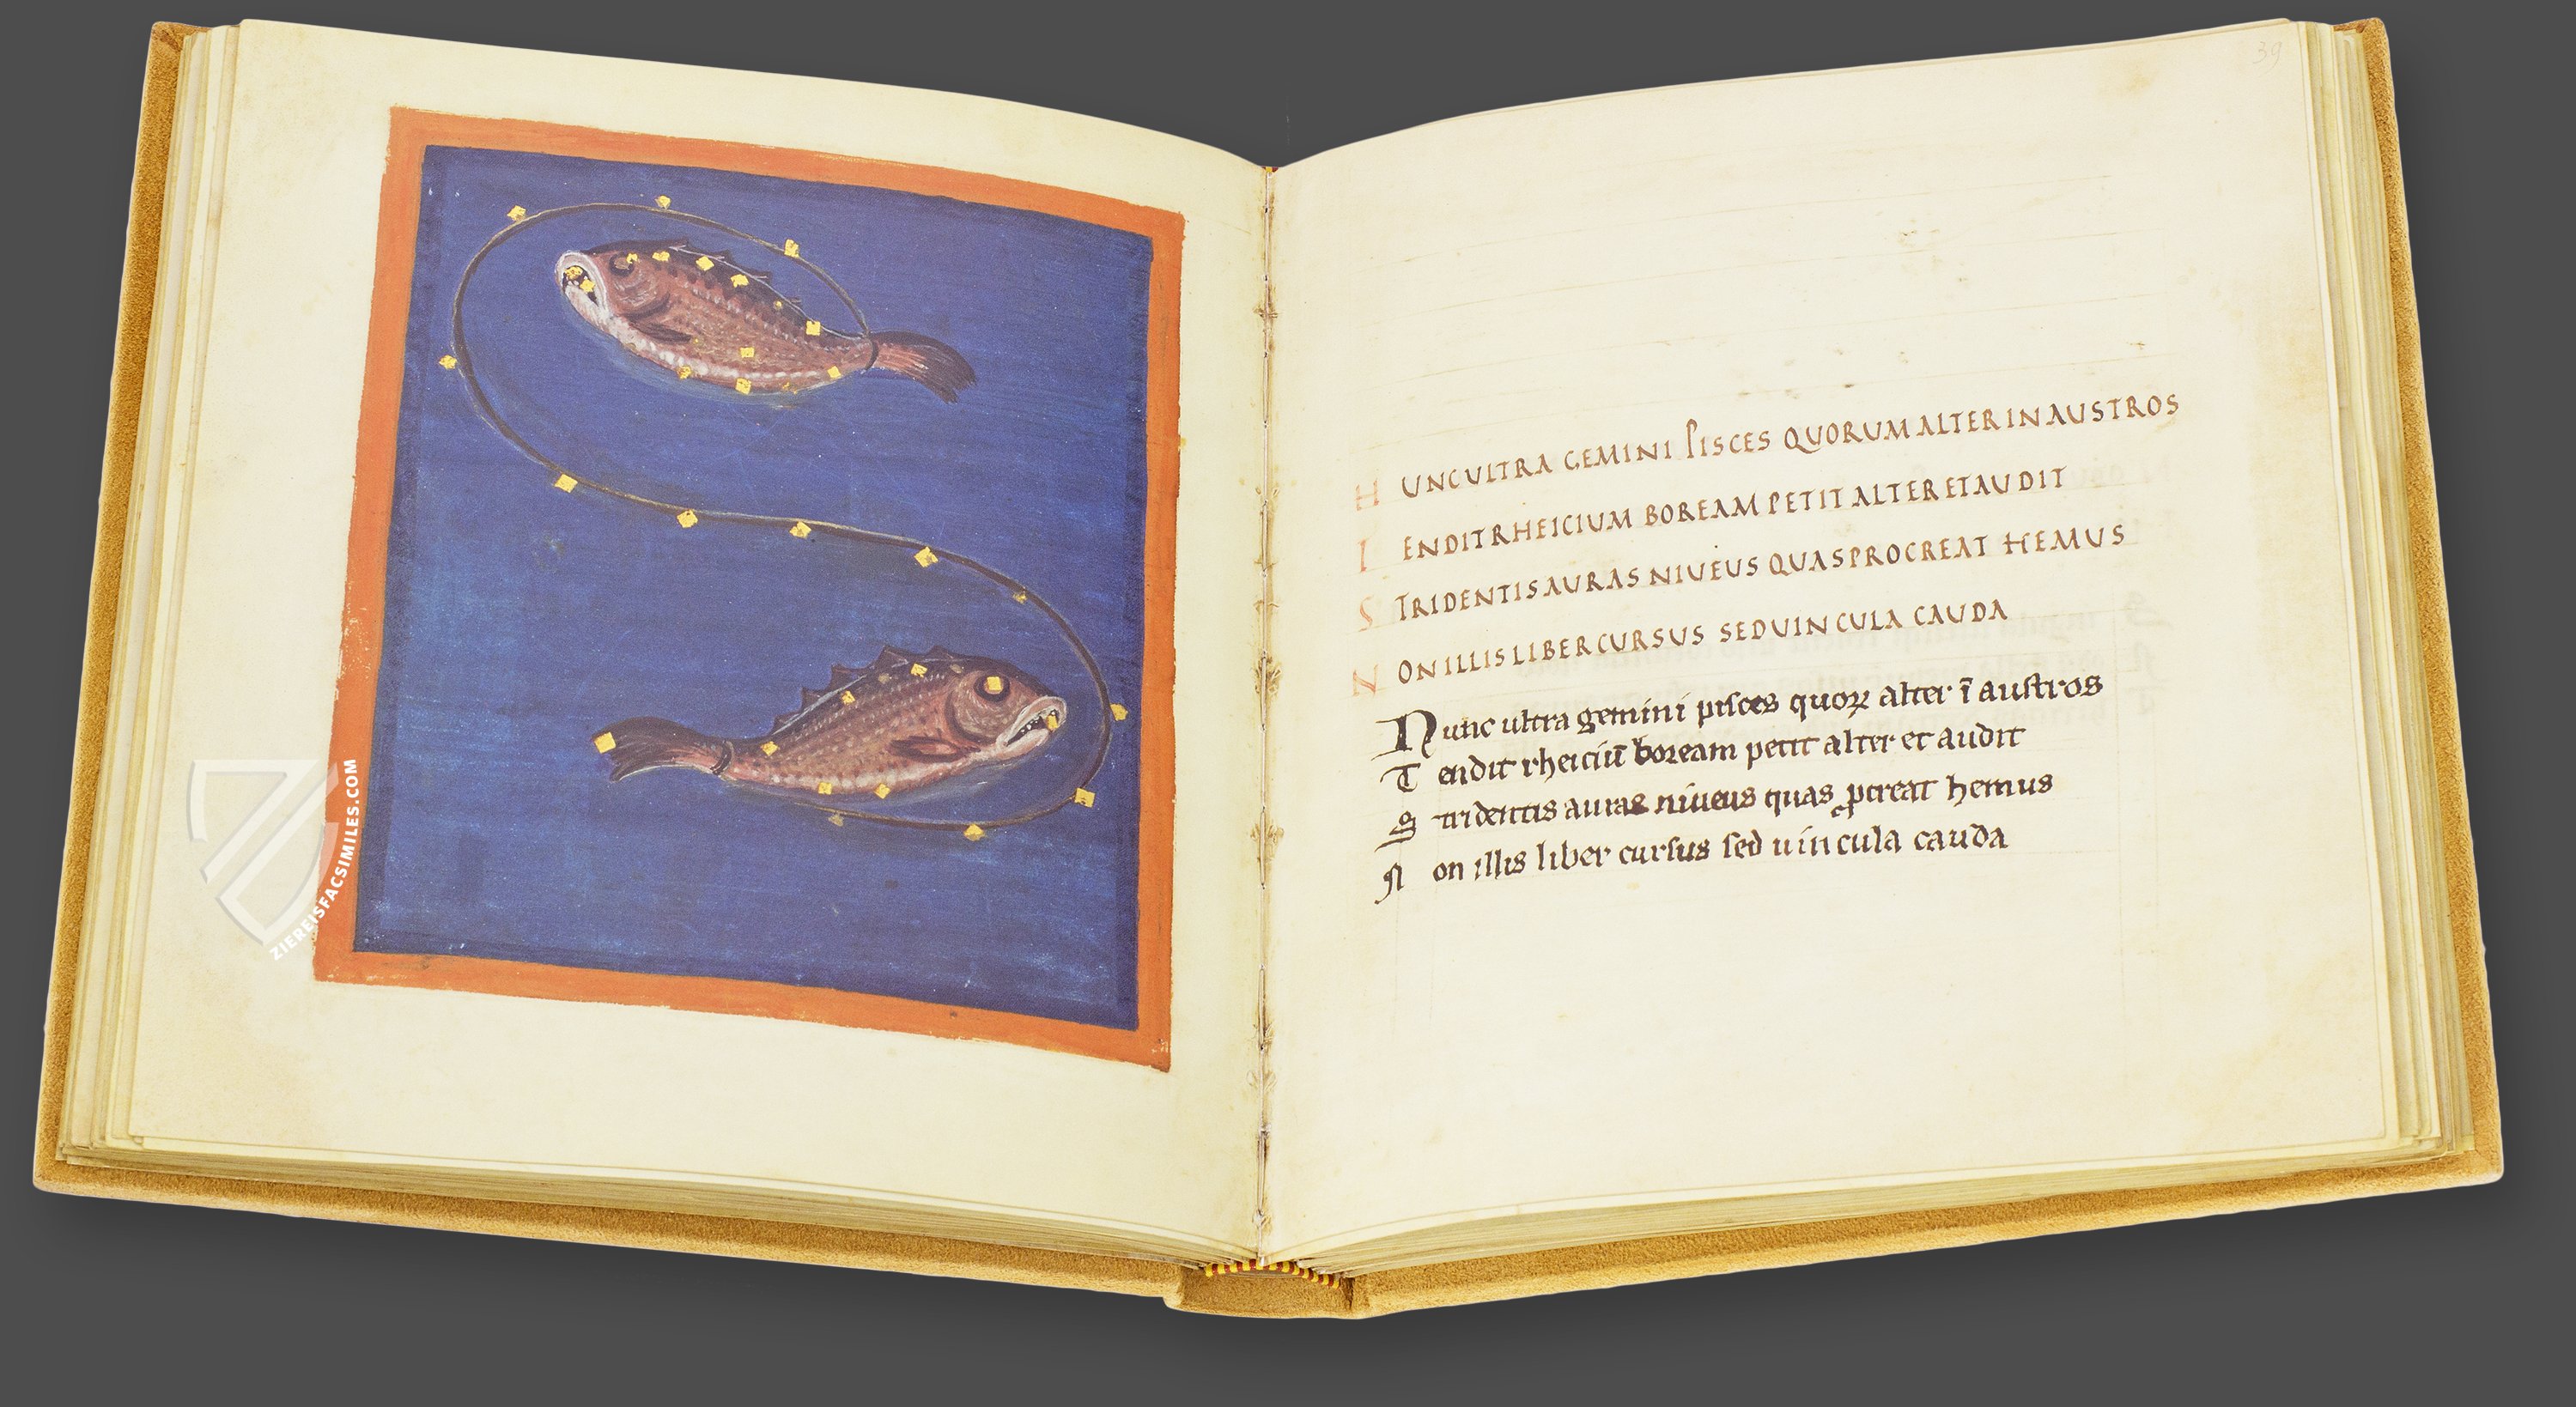 ZIEREISFACSIMILES.COM
39
H UNCULTRA GEMINI PISCES QUORUM ALTER IN AUSTROS
T ENDIT RHEICIUM BOREAM PETIT ALTER ET AUDIT
S TRIDENTIS AURAS NIUEUS QUAS PROCREAT HEMUS
N ON ILLIS LIBER CURSUS SED UINCULA CAUDA
Nunc ultra gemini pisces quoꝝ alter ī austros
T endit rheiciū boream petit alter et audit
S tridentis auras niueus quas ꝓcreat hemus
N on illis liber cursus sed uincula cauda